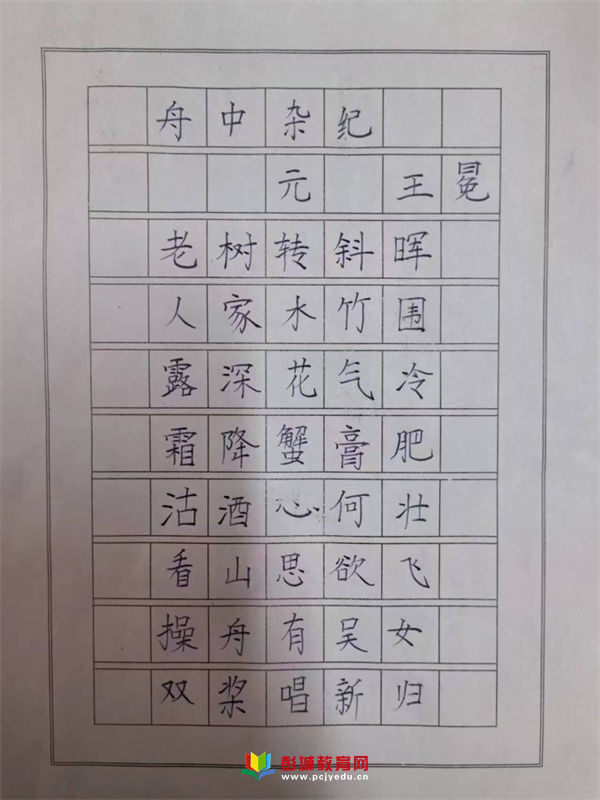 舟中杂纪
元 王冕
老树转斜晖
人家水竹围
露深花气冷
霜降蟹膏肥
沽酒心何壮
看山思欲飞
操舟有吴女
双桨唱新归
彭城教育网
www.pcjyedu.cn